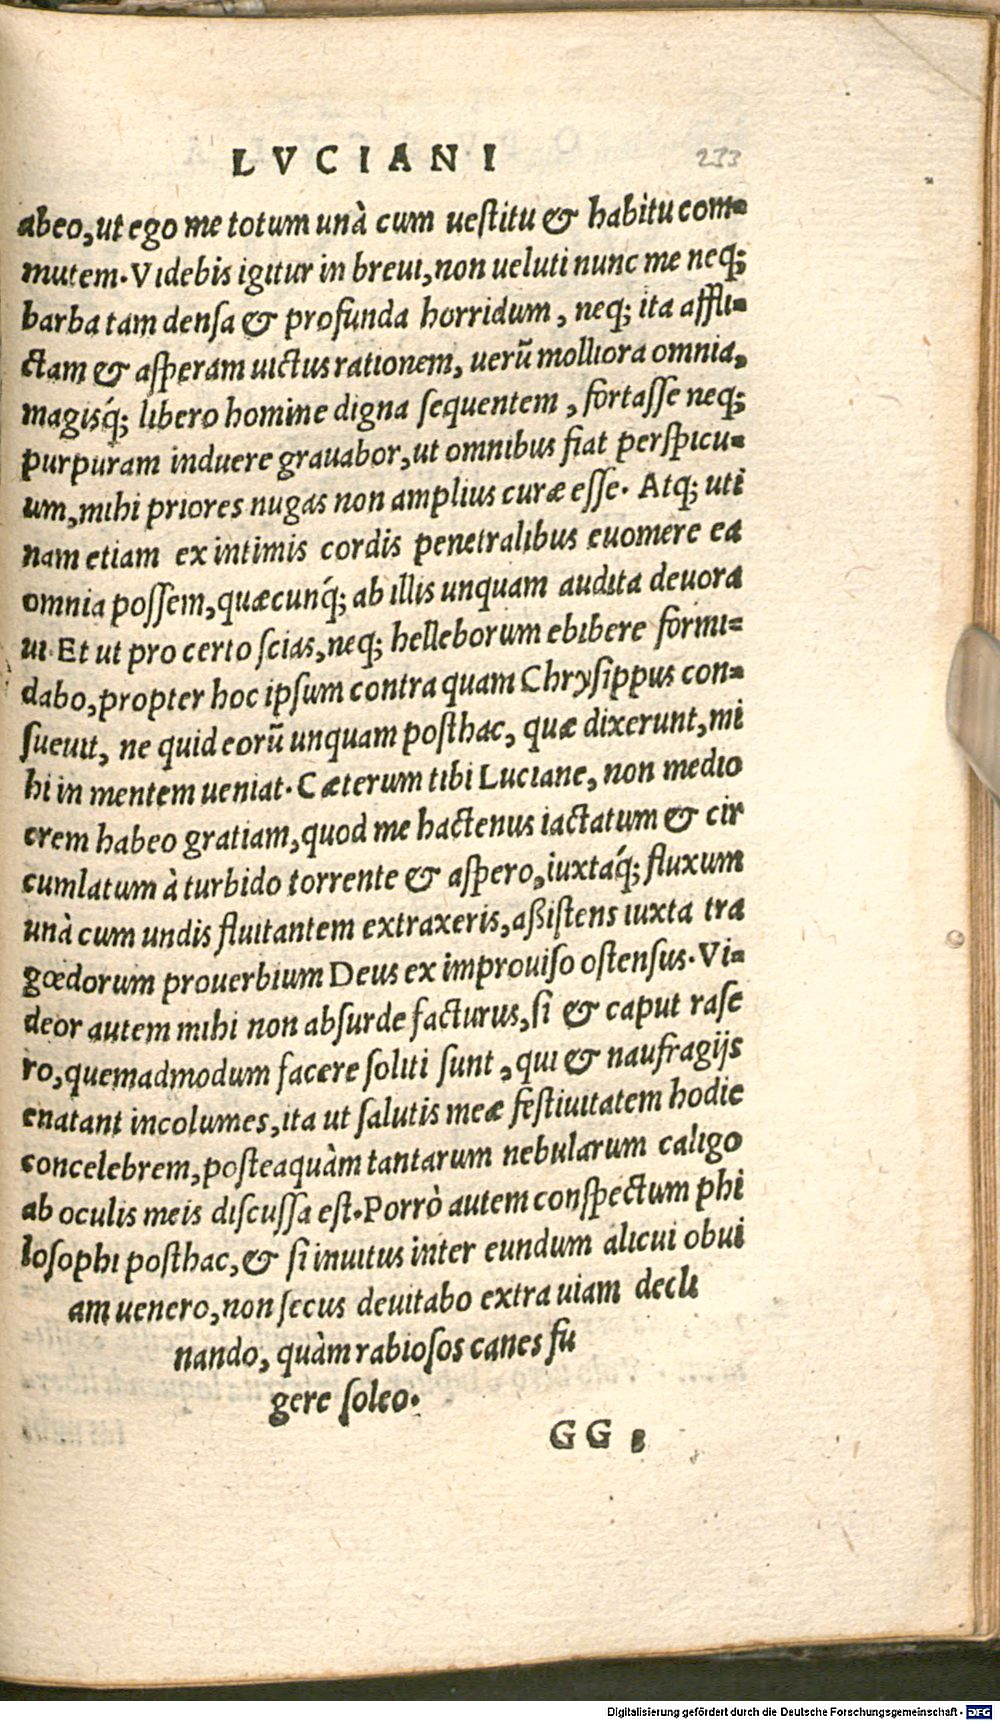 LVCIANI 233
abeo, ut ego me totum unà cum uestitu & habitu com=
mutem. Videbis igitur in breui, non ueluti nunc me neq;
barba tam densa & profunda horridum, neq; ita affli=
ctam & asperam uictus rationem, uerũ molliora omnia,
magisq́; libero homine digna sequentem, fortasse neq;
purpuram induere grauabor, ut omnibus fiat perspicu=
um, mihi priores nugas non amplius curæ esse. Atq; uti
nam etiam ex intimis cordis penetralibus euomere ea
omnia possem, quæcunq́; ab illis unquam audita deuora
ui. Et ut pro certo scias, neq; helleborum ebibere formi=
dabo, propter hoc ipsum contra quam Chrysippus con=
sueuit, ne quid eorũ unquam posthac, quæ dixerunt, mi
hi in mentem ueniat. Cæterum tibi Luciane, non medio
crem habeo gratiam, quod me hactenus iactatum & cir
cumlatum à turbido torrente & aspero, iuxtaq́; fluxum
unà cum undis fluitantem extraxeris, aßistens iuxta tra
gœdorum prouerbium Deus ex improuiso ostensus. Vi=
deor autem mihi non absurde facturus, si & caput rase
ro, quemadmodum facere soliti sunt, qui & naufragijs
enatant incolumes, ita ut salutis meæ festiuitatem hodie
concelebrem, posteaquàm tantarum nebularum caligo
ab oculis meis discussa est. Porrò autem conspectum phi
losophi posthac, & si inuitus inter eundum alicui obui
am uenero, non secus deuitabo extra uiam decli
nando, quàm rabiosos canes fu
gere soleo.
GG 8
Digitalisierung gefördert durch die Deutsche Forschungsgemeinschaft - DFG